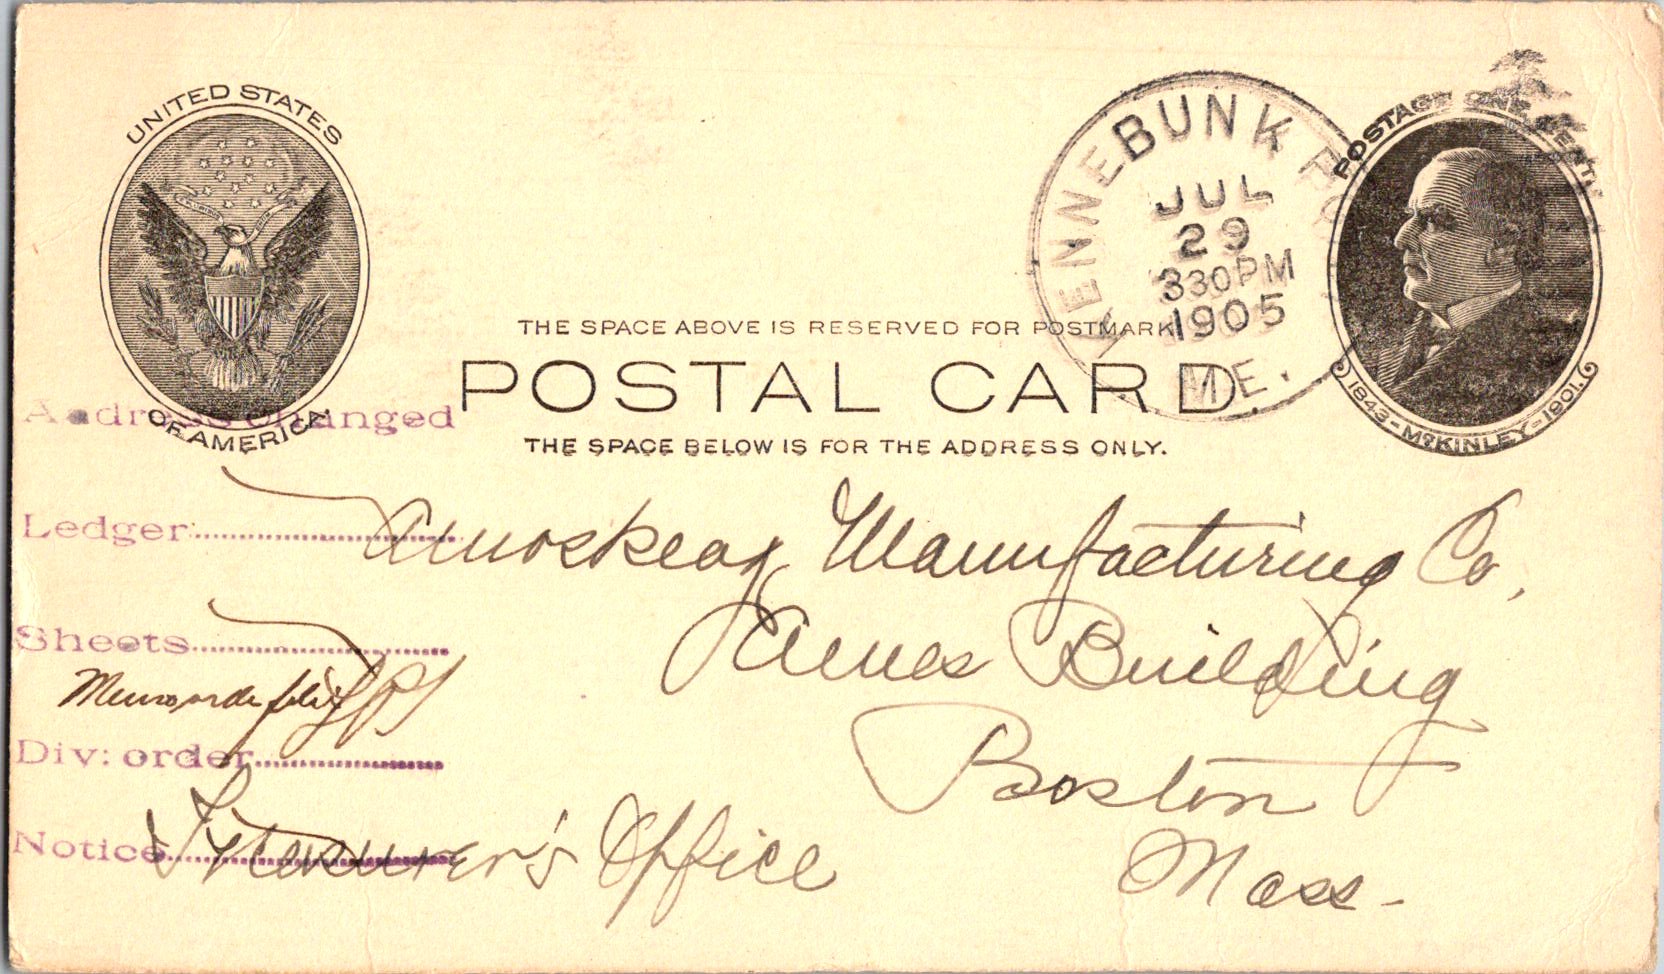 UNITED STATES
OF AMERICA
KENNEBUNK PORT
JUL
29
330PM
1905
ME.
POSTAGE ONE CENT
1843-McKINLEY-1901.
THE SPACE ABOVE IS RESERVED FOR POSTMARK
POSTAL CARD
THE SPACE BELOW IS FOR THE ADDRESS ONLY.
Address changed
Ledger
Amoskeag Manufacturing Co,
Sheets
Ames Building
Div: order
Boston
Notice
Treasurer's Office
Mass.